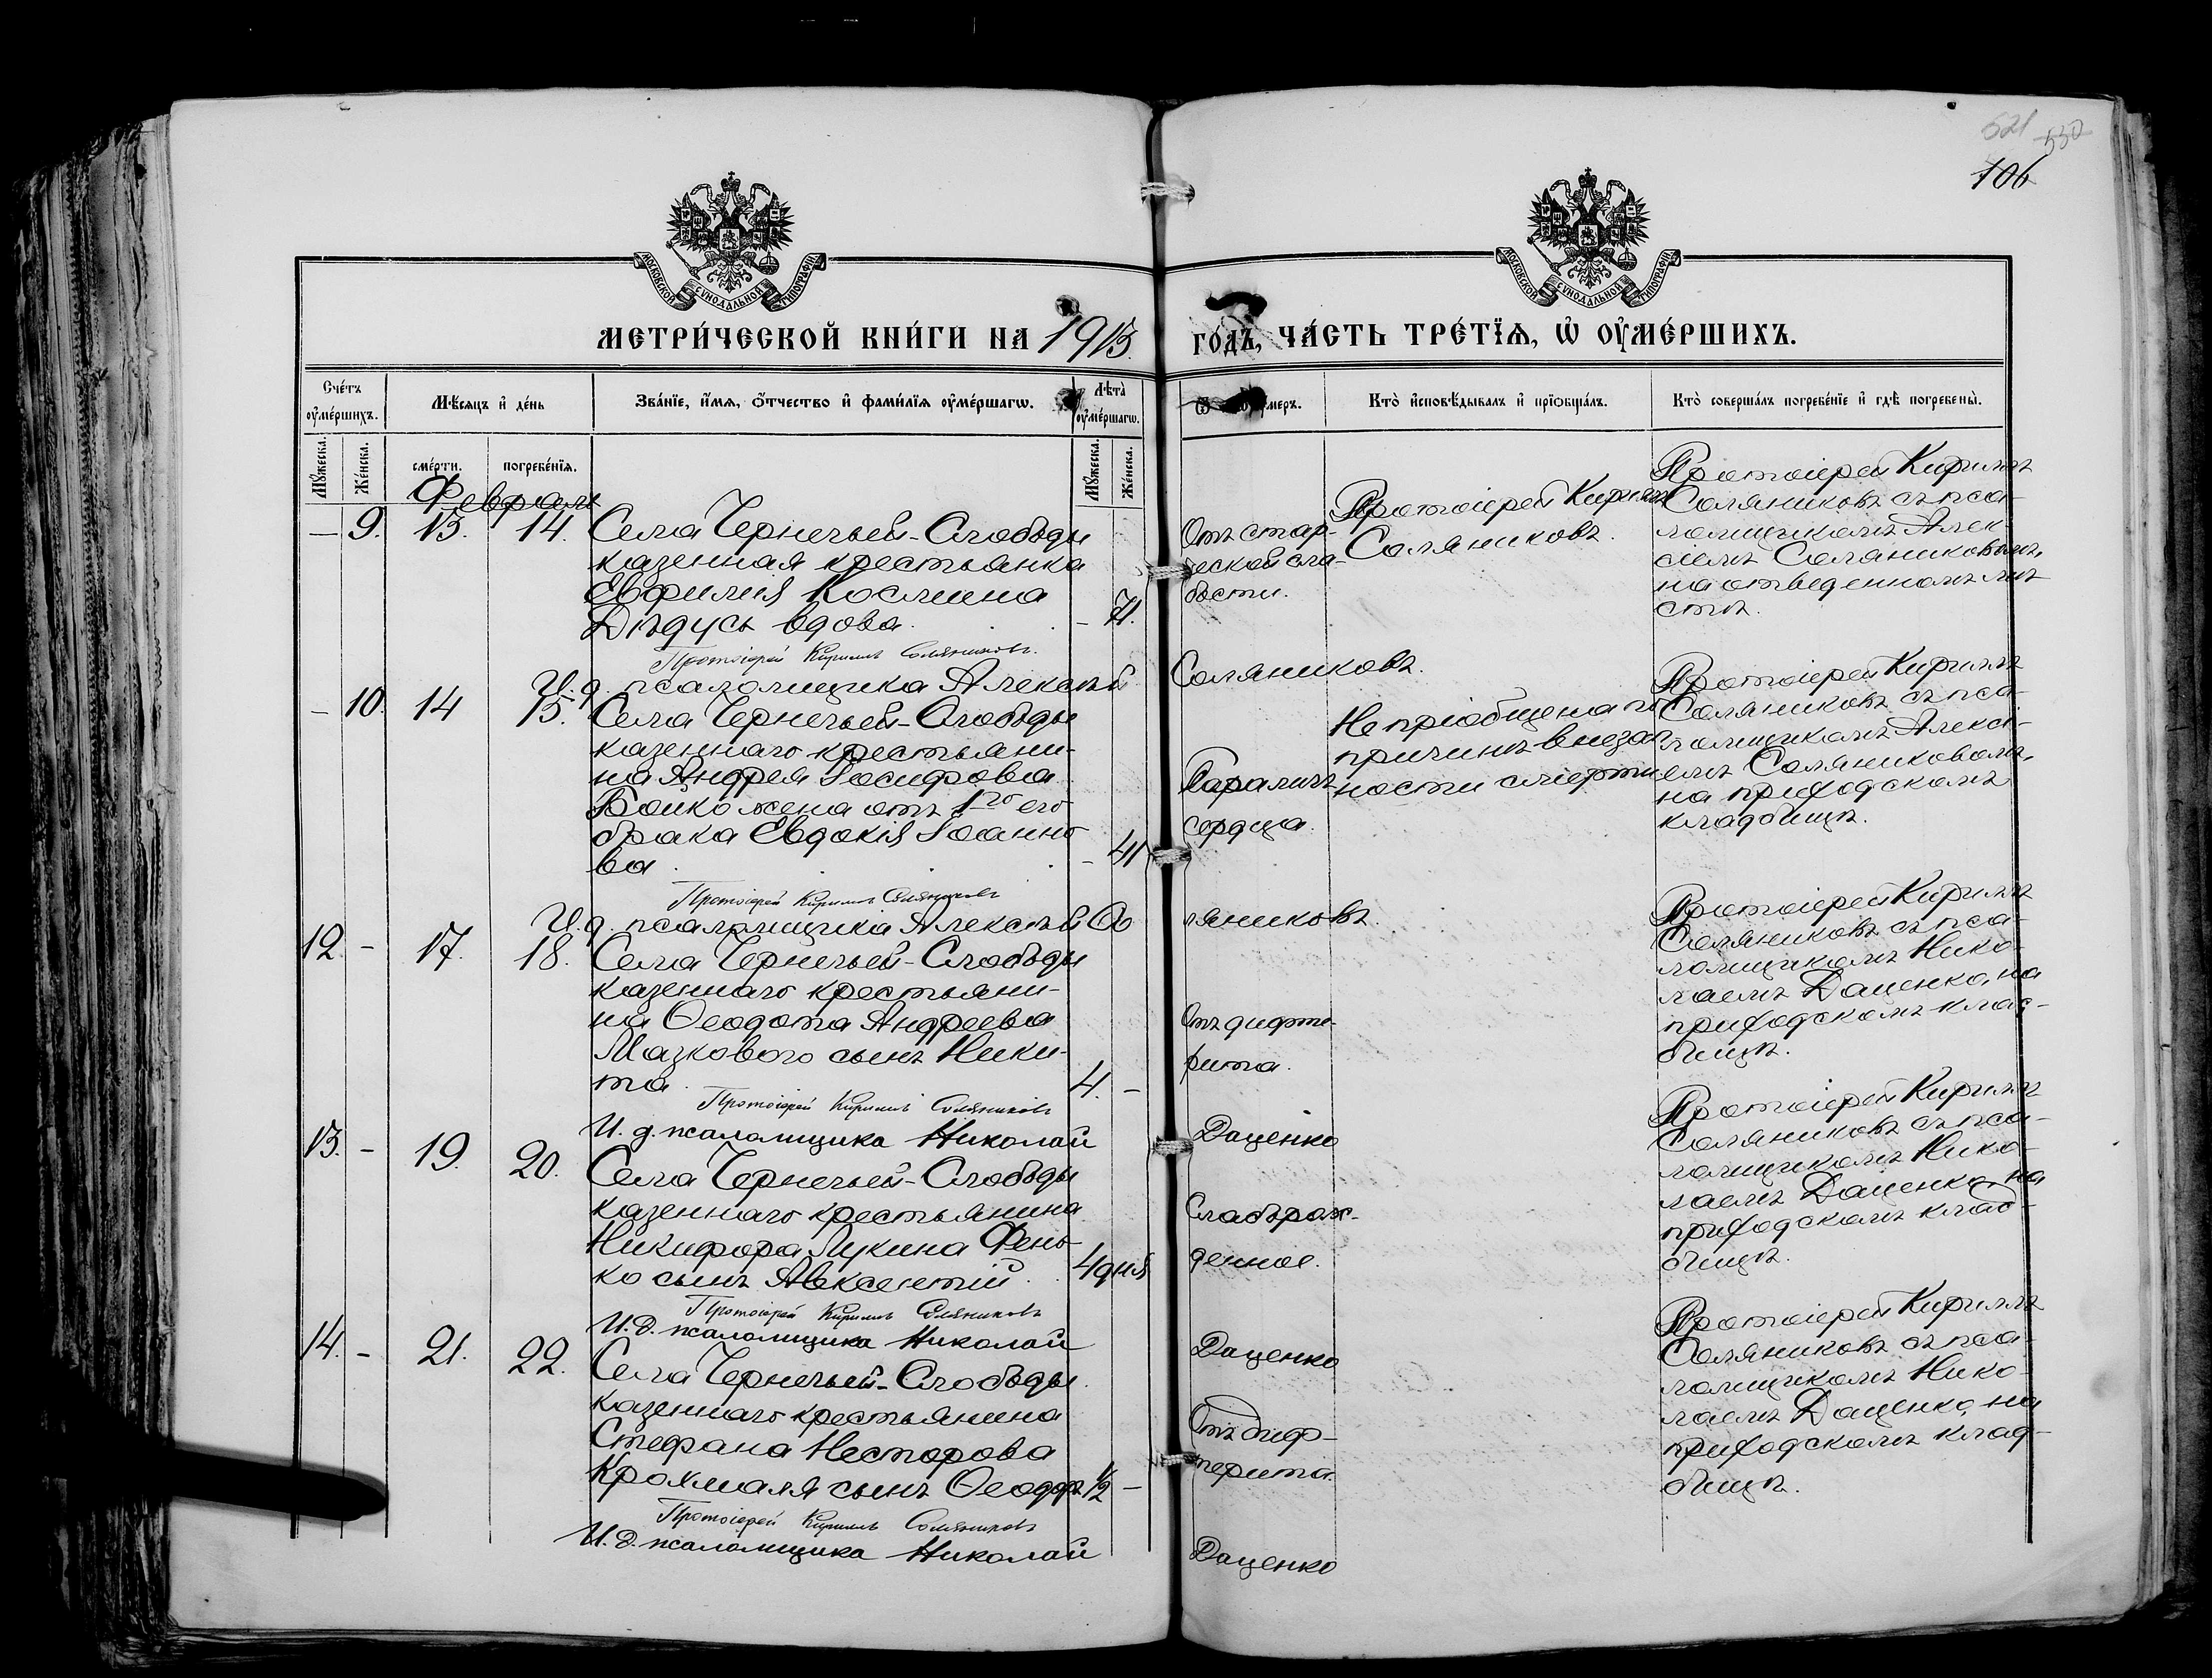 521 550
106
МОСКОВСКОЙ СУНОДАЛЬНОЙ ТИПОГРАФІИ
МОСКОВСКОЙ СУНОДАЛЬНОЙ ТИПОГРАФІИ
МЕТРИ́ЧЕСКОЙ КНИ́ГИ НА 1913 ГО́ДЪ, ЧА́СТЬ ТРЕ́ТЇѦ, Ѽ ОУМЕ́РШИХЪ.
Сче́тъ оуме́ршихъ.
Мѣ́сяцъ и де́нь
Зва́нїе, и́мя, о́тчество и фами́лїя оуме́ршагѡ.
Лѣта̀ оуме́ршагѡ.
Ѿ умеръ.
Кто̀ исповѣ́дывалъ и прїѡбща́лъ.
Кто̀ соверша́лъ погребе́нїе и гдѣ̀ погребены̀.
Мꙋ́жеска.
Же́нска.
сме́рти.
погребе́нїя.
Мꙋ́жеска.
Же́нска.
Февраль
— 9. 13. 14.
Села Чернечьей-Слободы
казенная крестьянка
Евфимія Космина
Дѣдусь вдова.
- 71.
Отъ стар-
ческой сла-
бости.
Протоіерей Кириллъ
Соляниковъ.
Протоіерей Кириллъ
Соляниковъ съ пса-
ломщикомъ Алек-
сіемъ Соляниковымъ,
на отведенномъ мѣ-
стѣ.
Протоіерей Кириллъ Соляниковъ.
И. д. псаломщика Алексѣй Соляниковъ.
— 10. 14 15.
Села Чернечьей-Слободы
казеннаго крестьяни-
на Андрея Іосифова
Бойко жена отъ 1го его
брака Евдокія Іоанно
ва
- 41
Параличъ
сердца.
Не пріобщена по
причинѣ внезап-
ности смерти
Протоіерей Кириллъ
Соляниковъ съ пса-
ломщикомъ Алексі-
емъ Соляниковымъ,
на приходскомъ
кладбищѣ.
Протоіерей Кириллъ Соляниковъ
И. д. псаломщика Алексѣй Соляниковъ.
12. - 17. 18.
Села Чернечьей-Слободы
казеннаго крестьяни-
на Ѳеодота Андреева
Мазкового сынъ Ники-
та
4. -
Отъ дифте-
рита.
Протоіерей Кириллъ
Соляниковъ съ пса-
ломщикомъ Нико-
лаемъ Даценко, на
приходскомъ клад-
бищѣ.
Протоіерей Кириллъ Соляниковъ
И. д. псаломщика Николай Даценко
13. - 19. 20.
Села Чернечьей-Слободы
казеннаго крестьянина
Никифора Лукина Фень-
ко сынъ Авксентій
4 дня
Слаборож-
денное.
Протоіерей Кириллъ
Соляниковъ съ пса-
ломщикомъ Нико-
лаемъ Даценко, на
приходскомъ клад-
бищѣ.
Протоіерей Кириллъ Соляниковъ
И. д. псаломщика Николай Даценко
14. - 21. 22.
Села Чернечьей-Слободы
казеннаго крестьянина
Стефана Несторова
Крохмаля сынъ Ѳеодоръ
1/2 -
Отъ диф-
терита.
Протоіерей Кириллъ
Соляниковъ съ пса-
ломщикомъ Нико-
лаемъ Даценко, на
приходскомъ клад-
бищѣ.
Протоіерей Кириллъ Соляниковъ
И. д. псаломщика Николай Даценко